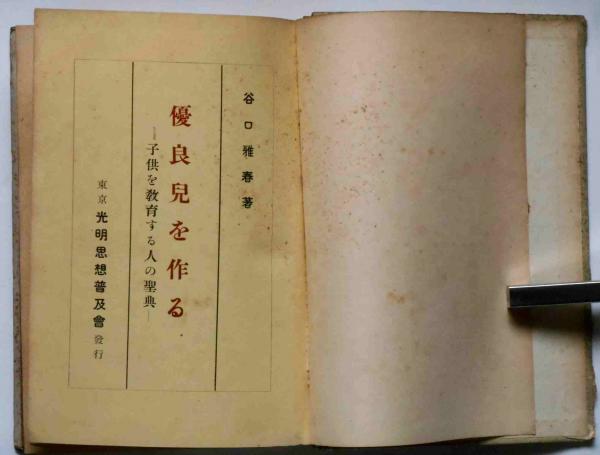 谷口雅春著
優良兒を作る
―子供を敎育する人の聖典―
東京 光明思想普及會 發行